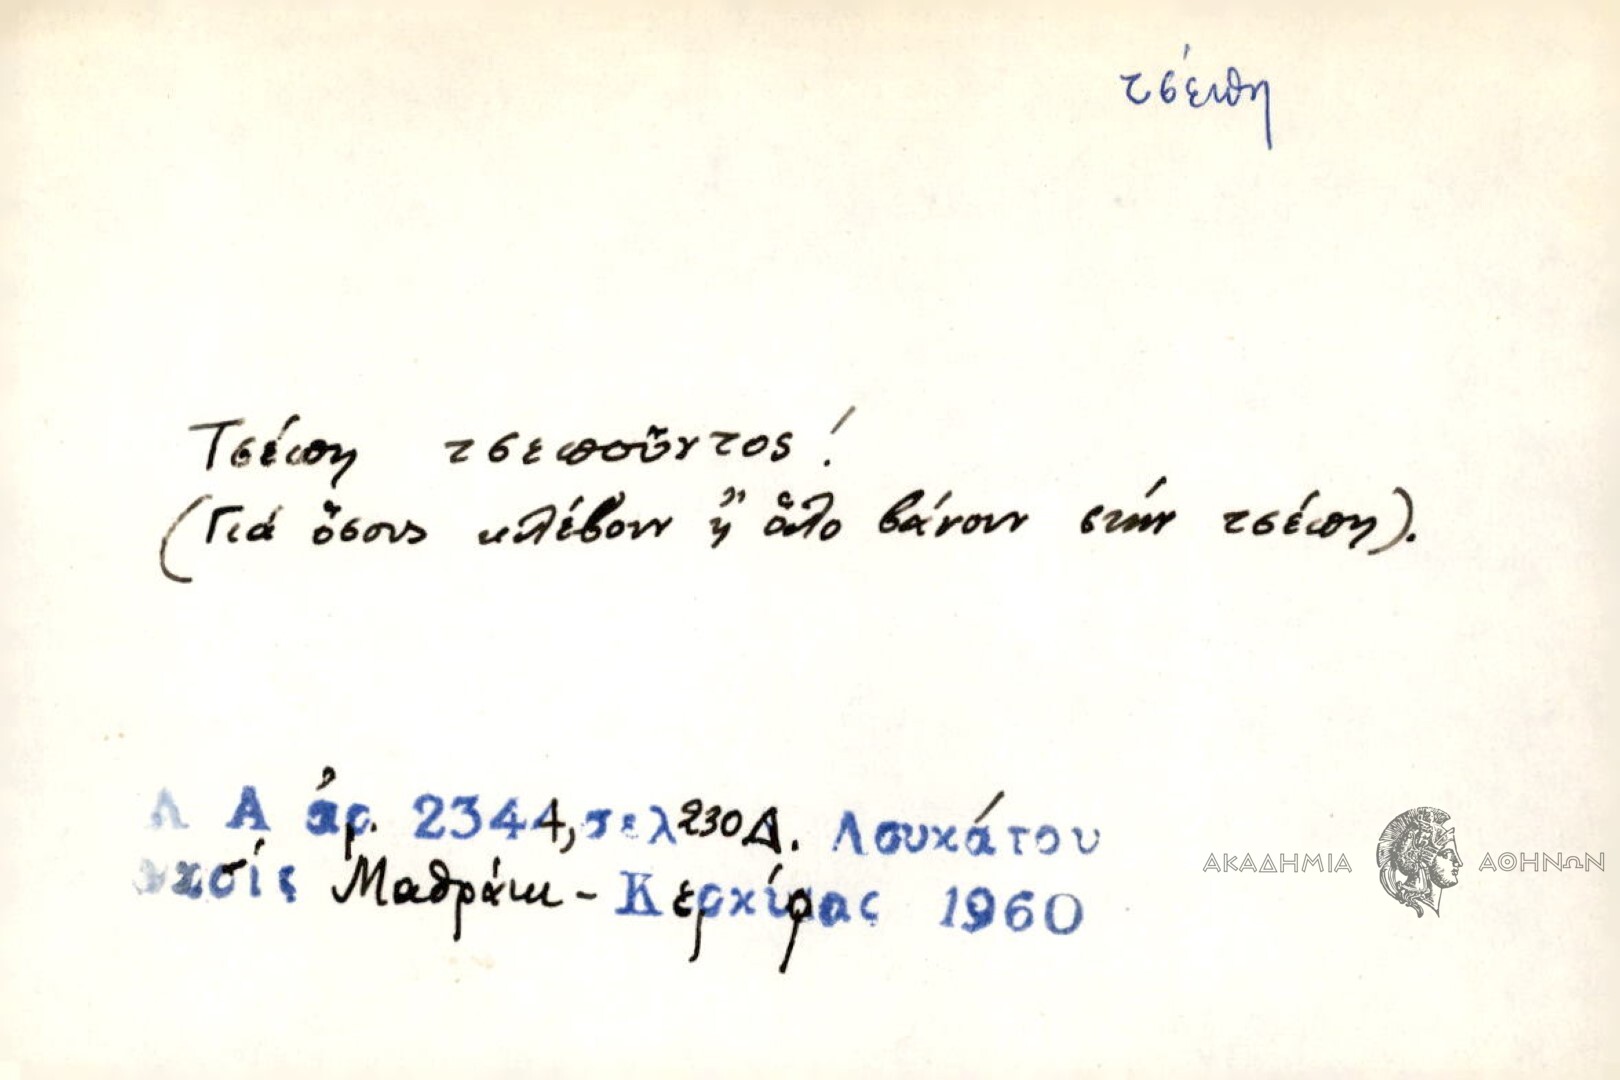 τσέπη
Τσέπη τσεποῦντος!
(Γιά ὅσους κλέβουν ἤ ὅλο βάνουν στήν τσέπη).
Λ Α ἀρ. 2344, σελ 230 Δ. Λουκάτου
Μαθράκι - Κερκύρας 1960
ΑΚΑΔΗΜΙΑ ΑΘΗΝΩΝ